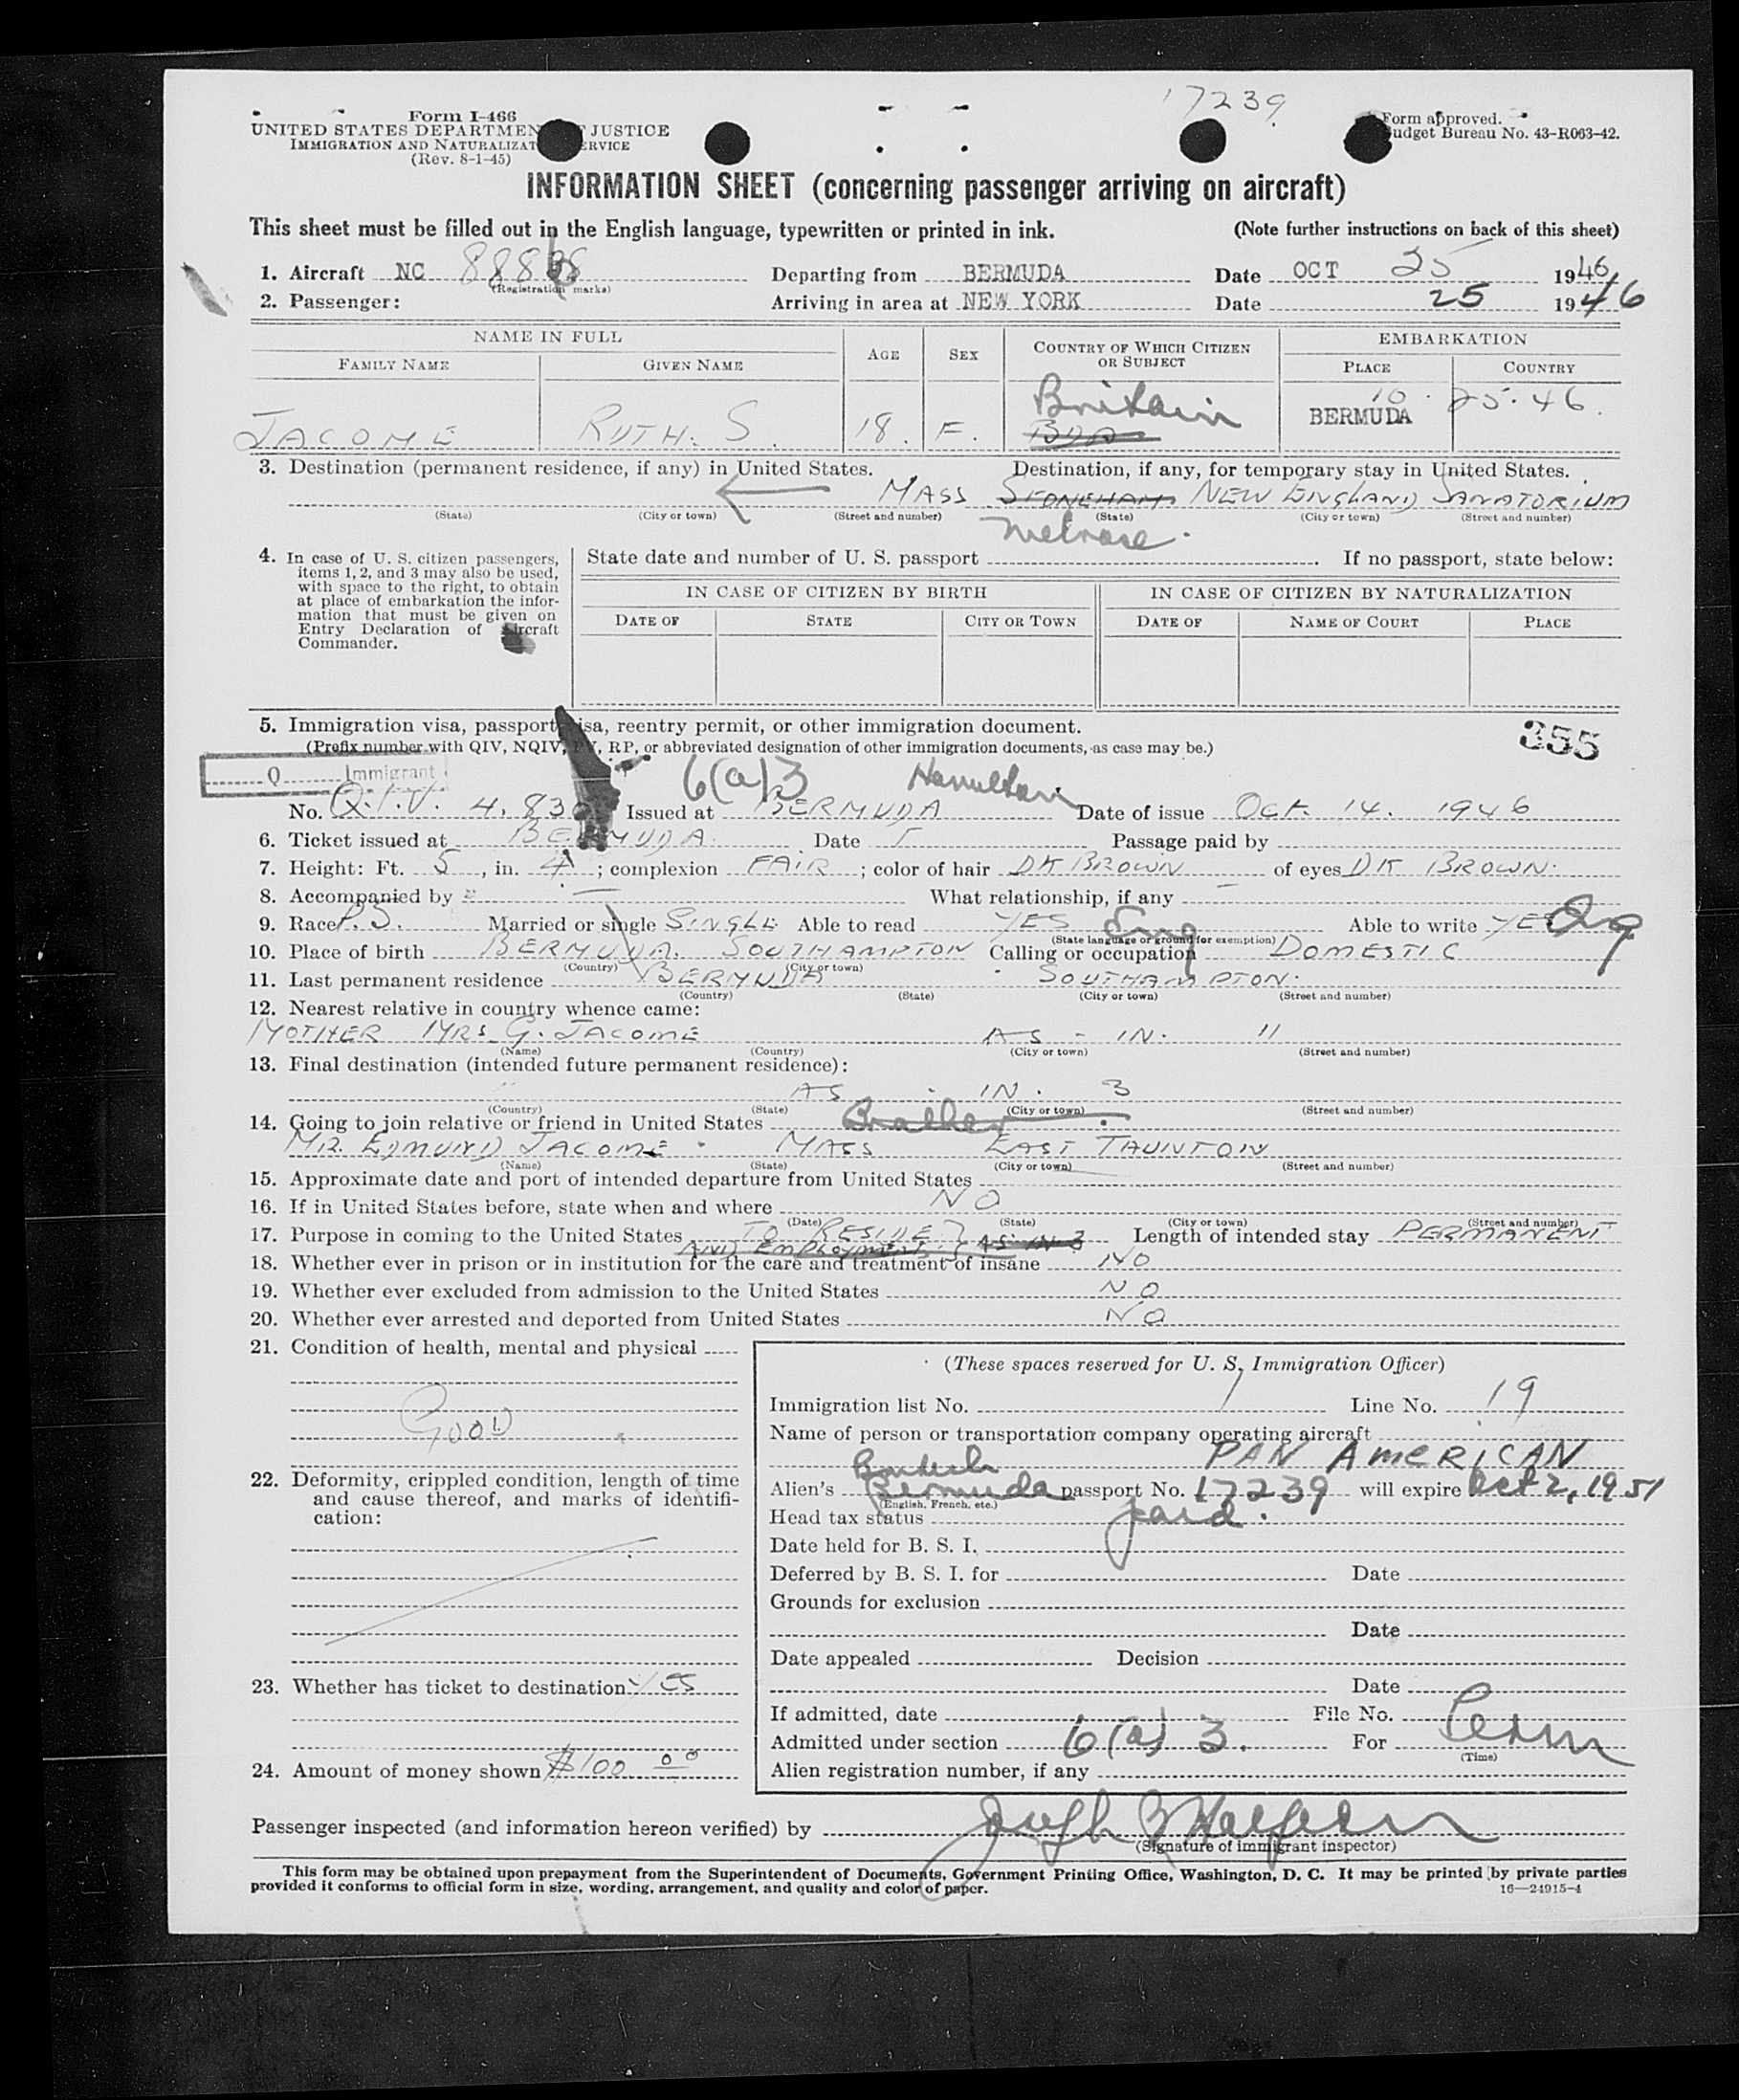 17239
Form I-466
UNITED STATES DEPARTMEN JUSTICE
IMMIGRATION AND NATURALIZAT ERVICE
(Rev. 8-1-45)
Form approved.
udget Bureau No. 43-R063-42.
INFORMATION SHEET (concerning passenger arriving on aircraft)
This sheet must be filled out in the English language, typewritten or printed in ink. (Note further instructions on back of this sheet)
1. Aircraft NC Departing from BERMUDA Date OCT 25 1946
(Registration marks)
2. Passenger: Arriving in area at NEW YORK Date 25 1946
NAME IN FULL AGE SEX COUNTRY OF WHICH CITIZEN OR SUBJECT EMBARKATION
FAMILY NAME GIVEN NAME PLACE COUNTRY
Britain 10 25.46.
JACOME RUTH. S. 18. F. BDA BERMUDA
3. Destination (permanent residence, if any) in United States. Destination, if any, for temporary stay in United States.
MASS STONEHAM NEW ENGLAND SANATORIUM
(State) (City or town) (Street and number) (State) (City or town) (Street and number)
Melrose.
4. In case of U. S. citizen passengers, items 1, 2, and 3 may also be used, with space to the right, to obtain at place of embarkation the information that must be given on Entry Declaration of Aircraft Commander.
State date and number of U. S. passport . If no passport, state below:
IN CASE OF CITIZEN BY BIRTH IN CASE OF CITIZEN BY NATURALIZATION
DATE OF STATE CITY OR TOWN DATE OF NAME OF COURT PLACE
5. Immigration visa, passport visa, reentry permit, or other immigration document.
355
(Prefix number with QIV, NQIV, PV, RP, or abbreviated designation of other immigration documents, as case may be.)
Q Immigrant
6(a)3 Hamilton
No. Q.I.V. 4,83 Issued at BERMUDA Date of issue OCT. 14. 1946
6. Ticket issued at BERMUDA. Date Passage paid by
7. Height: Ft. 5, in. 4; complexion FAIR; color of hair DK BROWN of eyes DK BROWN.
8. Accompanied by — What relationship, if any —
9. Race P.S. Married or single SINGLE Able to read YES Eng Able to write YES Eng
(State language or ground for exemption)
10. Place of birth BERMUDA. SOUTHAMPTON Calling or occupation DOMESTIC
(Country) (City or town)
11. Last permanent residence BERMUDA SOUTHAMPTON.
(Country) (State) (City or town) (Street and number)
12. Nearest relative in country whence came:
MOTHER MRS G. JACOME AS - IN. 11
(Name) (Country) (City or town) (Street and number)
13. Final destination (intended future permanent residence):
AS - IN. 3
(Country) (State) (City or town) (Street and number)
14. Going to join relative or friend in United States Brother
MR. EDMUND JACOME. MASS EAST TAUNTON
(Name) (State) (City or town) (Street and number)
15. Approximate date and port of intended departure from United States
16. If in United States before, state when and where NO
(Date) (State) (City or town) (Street and number)
17. Purpose in coming to the United States TO RESIDE AS IN 3 Length of intended stay PERMANENT
AND EMPLOYMENT
18. Whether ever in prison or in institution for the care and treatment of insane NO
19. Whether ever excluded from admission to the United States NO
20. Whether ever arrested and deported from United States NO
21. Condition of health, mental and physical
GOOD
22. Deformity, crippled condition, length of time and cause thereof, and marks of identification:
23. Whether has ticket to destination YES
24. Amount of money shown $100 00
(These spaces reserved for U. S. Immigration Officer)
Immigration list No. 1 Line No. 19
Name of person or transportation company operating aircraft
PAN AMERICAN
British
Alien's Bermuda passport No. 17239 will expire Oct 2, 1951
(English, French, etc.)
Head tax status paid.
Date held for B. S. I.
Deferred by B. S. I. for Date
Grounds for exclusion
Date
Date appealed Decision
Date
If admitted, date File No.
Admitted under section 6(a) 3. For Perm
(Time)
Alien registration number, if any
Passenger inspected (and information hereon verified) by
(Signature of immigrant inspector)
This form may be obtained upon prepayment from the Superintendent of Documents, Government Printing Office, Washington, D. C. It may be printed by private parties
provided it conforms to official form in size, wording, arrangement, and quality and color of paper.
16—24915-4